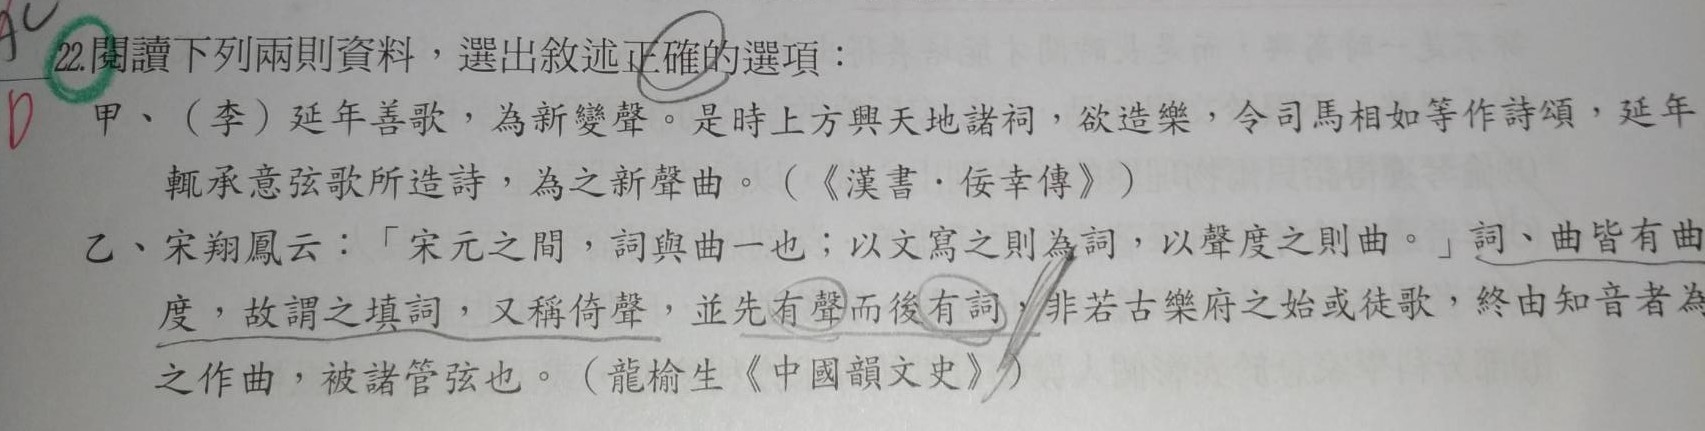 AC
D
22.閱讀下列兩則資料，選出敘述正確的選項：
甲、（李）延年善歌，為新變聲。是時上方興天地諸祠，欲造樂，令司馬相如等作詩頌，延年
輒承意弦歌所造詩，為之新聲曲。（《漢書．佞幸傳》）
乙、宋翔鳳云：「宋元之間，詞與曲一也；以文寫之則為詞，以聲度之則曲。」詞、曲皆有曲
度，故謂之填詞，又稱倚聲，並先有聲而後有詞，非若古樂府之始或徒歌，終由知音者為
之作曲，被諸管弦也。（龍榆生《中國韻文史》）